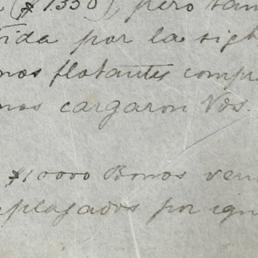 ($1350), pero tam
ida por la sig
nos flotantes compr
nos cargaron Vds.
$10000 Bonos ven
plazados por igu